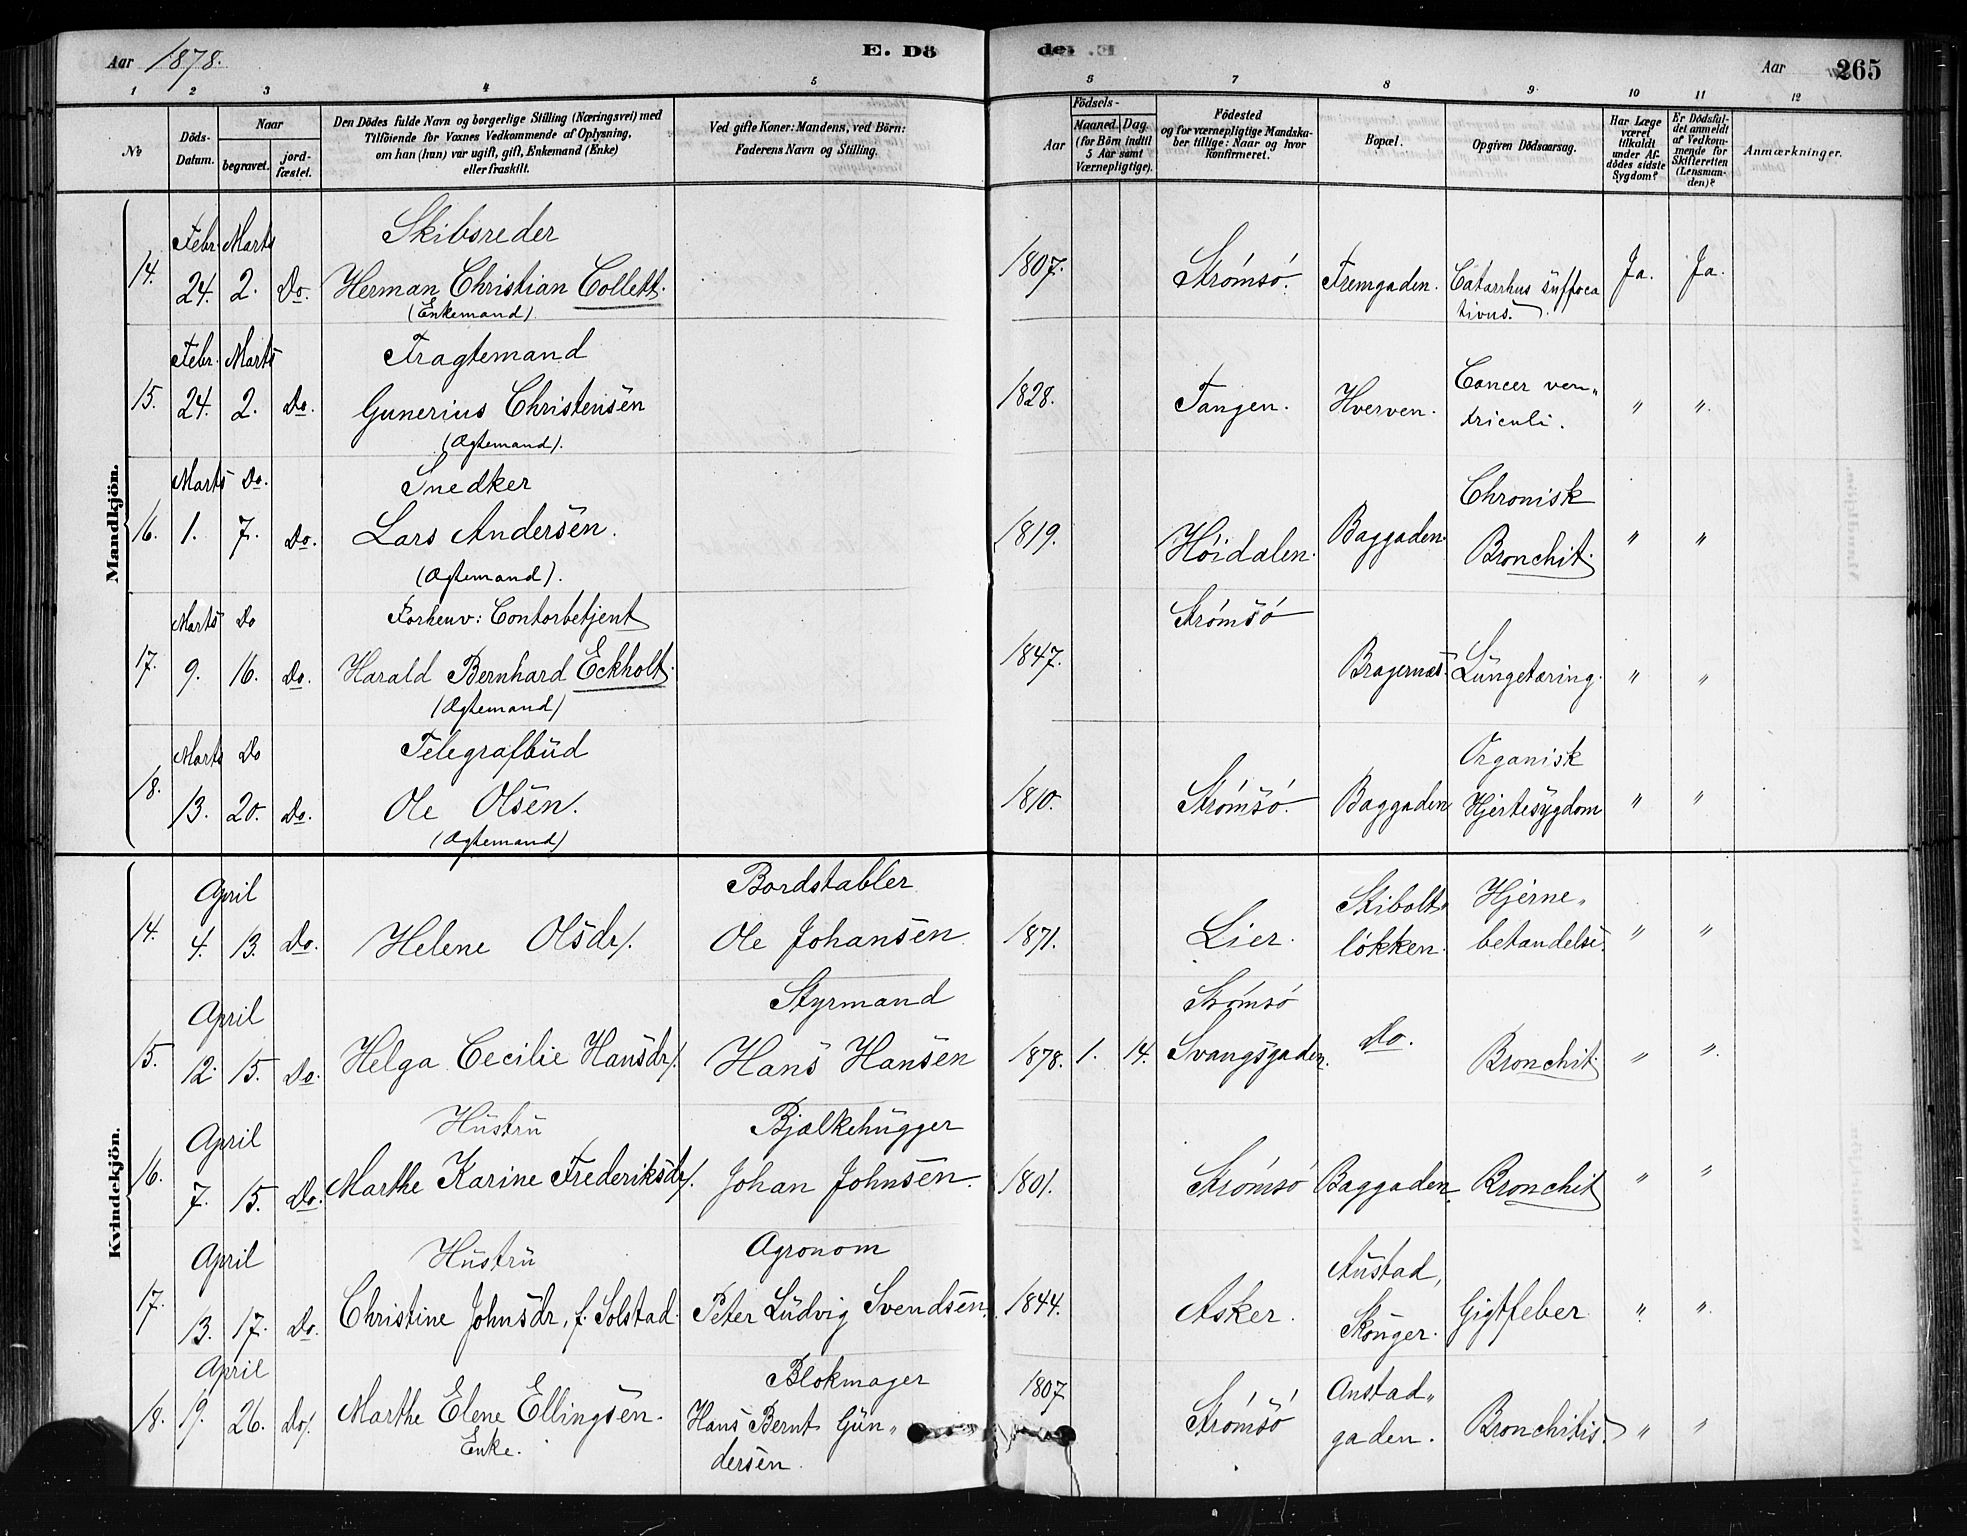 Aar 1878. E. Dö
de: Aar 265
1 2 3 4 5 6 7 8 9 10 11 12
No
Döds-Datum.
Naar
begravet.
jord-fæstet.
Den Dödes fulde Navn og borgerlige Stilling (Næringsvei) med
Tilföiende for Voxnes Vedkommende af Oplysning,
om han (hun) var ugift, gift, Enkemand (Enke)
eller fraskilt.
Ved gifte Koner: Mandens, ved Börn:
Faderens Navn og Stilling.
Födsels-
Aar
Maaned. Dag
(for Börn indtil
5 Aar samt
Værnepligtige).
Födested
og for værnepligtige Mandska-
ber tillige: Naar og hvor
konfirmeret.
Bopæl.
Opgiven Dödsaarsag.
Har Læge
været
tilkaldt
under Af-
dödes sidste
Sygdom?
Er Dödsfal-
det anmeldt
af Vedkom-
mende for
Skifteretten
(Lensman-
den)?
Anmærkninger.
Mandkjön.
Febr. Marts Skibsreder
14. 24. 2. Do. Herman Christian Collett. 1807. Strömsö. Fremgaden. Catarrhus suffoca
(Enkemand). tivus. Ja. Ja.
Febr. Marts Fragtemand
15. 24. 2. Do. Gunerius Christensen 1828. Tangen. Hverven. Cancer ven„
(Ægtemand). triculi. „ „
Marts Do. Snedker Chronisk
16. 1. 7. Do. Lars Andersen. 1819. Höidalen. Baggaden. Bronchit. „ „
(Ægtemand).
Marts Do Forhenv: Contorbetjent Strömsö
17. 9. 16. Do. Harald Bernhard Eckholt. 1847. Bragernæs. Lungetæring. „ „
(Ægtemand)
Marts Do Telegrafbud Organisk
18. 13. 20. Do. Ole Olsen. 1810. Strömsö Baggaden Hjertesygdom „ „
(Ægtemand)
Kvindekjön.
April Bordstabler Skibolt„ Hjerne„
14. 4. 13. Do. Helene Olsdr. Ole Johansen 1871. Lier. lökken. betændelse. „ „
April Styrmand Strömsö
15. 12. 15. Do. Helga Cecilie Hansdr. Hans Hansen 1878. 1. 14. Svangsgaden. Do. Bronchit. „ „
April Hustru Bjælkehugger
16. 7. 15. Do. Marthe Karine Frederiksdr. Johan Johnsen. 1801. Strömsö Baggaden. Bronchit „ „
April Hustru Agronom Austad,
17. 13. 17. Do. Christine Johnsdr. f. Solstad. Peter Ludvig Svendsen. 1844. Asker. Skouger. Gigtfeber „ „
April Blokmager Austad„
18. 19. 26. Do. Marthe Elene Ellingsen. Hans Bernt Gun„ 1807 Strömsö gaden. Bronchitis. „ „
Enke. dersen.